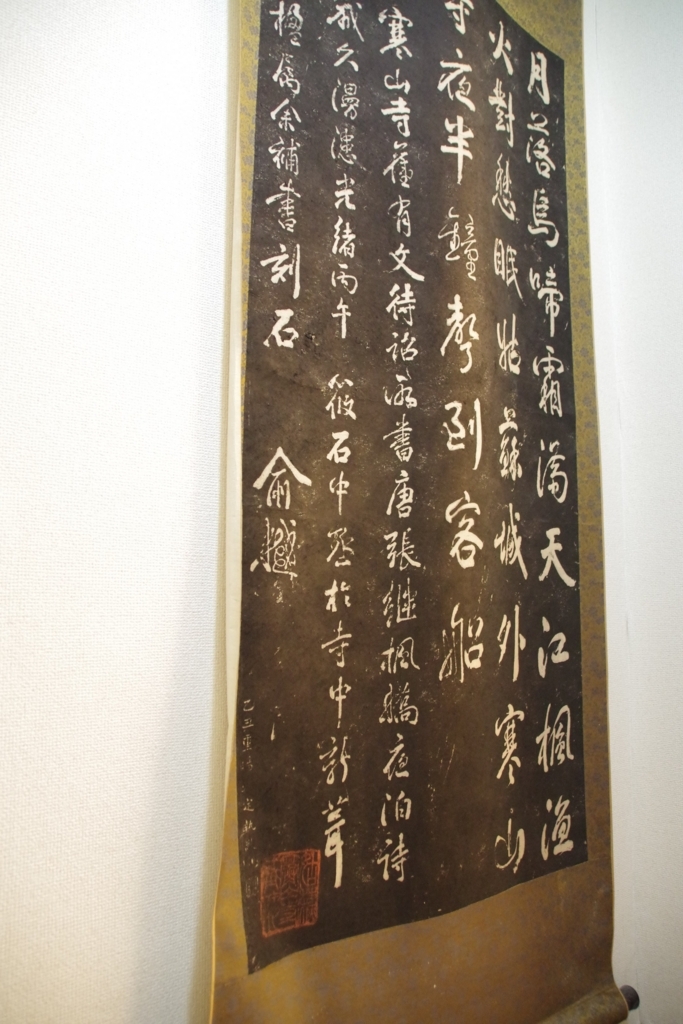 月落烏啼霜滿天江楓漁
火對愁眠姑蘇城外寒山
寺夜半鐘聲到客船
寒山寺舊有文待詔所書唐張繼楓橋夜泊詩
歲久漫漶光緒丙午 筱石中丞於寺中新葺
楹屬余補書刻石
俞樾
乙丑重